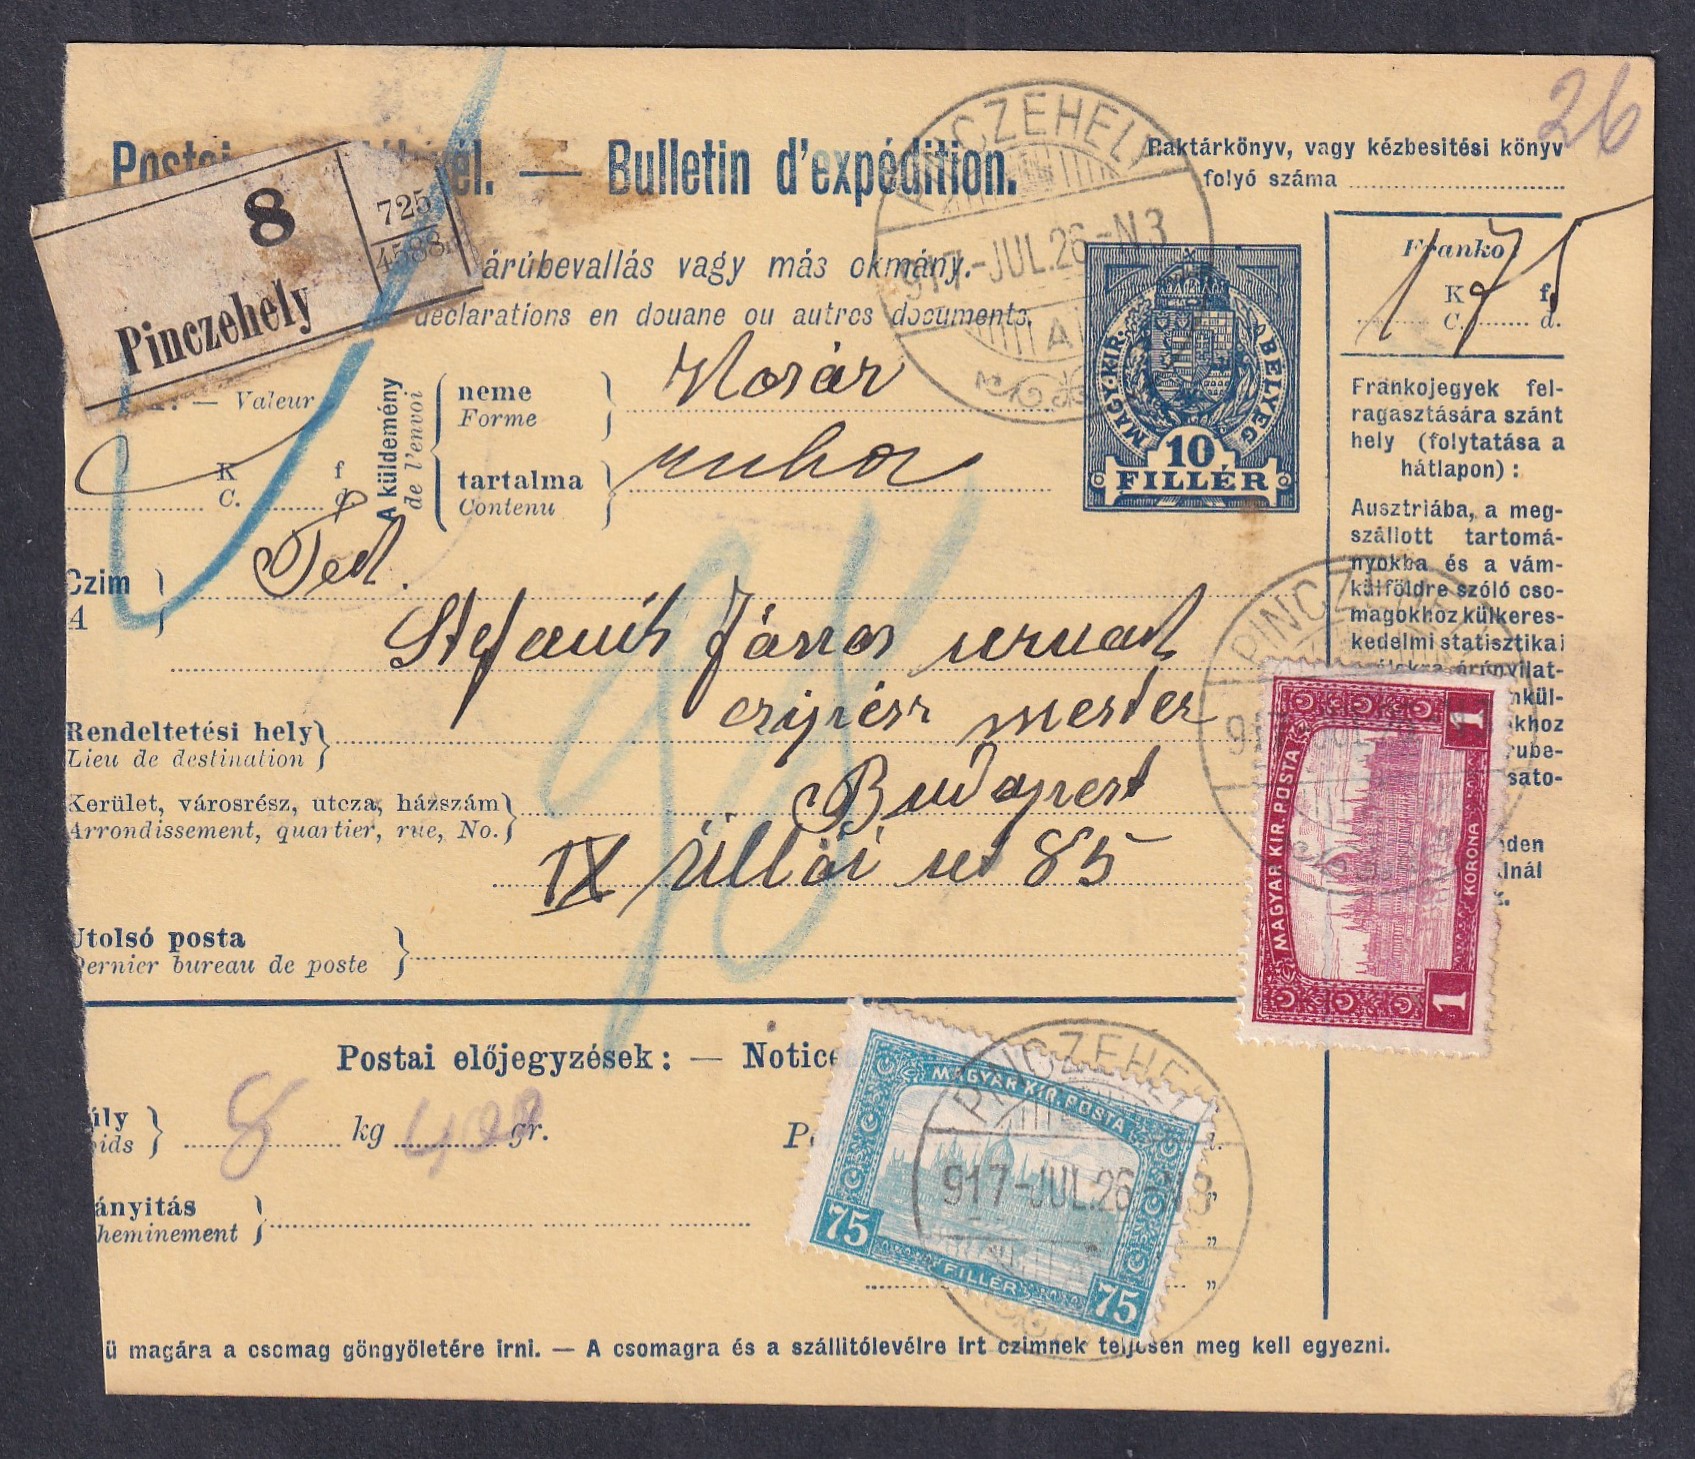 26
Postai — Bulletin d'expédition.
Raktárkönyv, vagy kézbesitési könyv
folyó száma
8
725
4588
Pinczehely
PINCZEHELY
917-JUL.26-N3
A
árúbevallás vagy más okmány.
déclarations en douane ou autres documents.
Franko
K f
C. d.
175
MAGY. KIR. BÉLYEG
10
FILLÉR
— Valeur
K f
C. d
A küldemény
de l'envoi
neme
Forme
Kosár
tartalma
Contenu
ruha
Frankojegyek fel-
ragasztására szánt
hely (folytatása a
hátlapon) :
Ausztriába, a meg-
szállott tartomá-
nyokba és a vám-
külföldre szóló cso-
magokhoz külkeres-
kedelmi statisztikai
Czim
A
Tek.
Stefanik János urnak
czipész mester
Rendeltetési hely
Lieu de destination
Budapest
Kerület, városrész, utcza, házszám
Arrondissement, quartier, rue, No.
IX Üllői ut 85
Utolsó posta
Dernier bureau de poste
PINCZEHELY
917 JUL
1
MAGYAR KIR. POSTA
KORONA
1
Postai előjegyzések: — Notice
úly
oids
8 kg gr.
ányitás
heminement
MAGYAR KIR. POSTA
75
FILLÉR
75
PINCZEHELY
917-JUL.26-N3
ü magára a csomag göngyöletére irni. — A csomagra és a szállitólevélre irt czimnek teljesen meg kell egyezni.